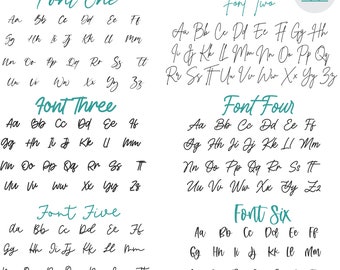 Font One
Aa Bb Cc Dd Ee Ff
Gg Hh Ii Jj Kk Ll Mm
Nn Oo Pp Qq Rr Ss Tt
Uu Vv Ww Xx Yy Zz
Font Two
Aa Bb Cc Dd Ee Ff Gg Hh
Ii Jj Kk Ll Mm Nn Oo Pp Qq
Rr Ss Tt Uu Vv Ww Xx Yy Zz
Font Three
Aa Bb Cc Dd Ee Ff
Gg Hh Ii Jj Kk Ll Mm
Nn Oo Pp Qq Rr Ss Tt
Uu Vv Ww Xx Yy Zz
Font Four
Aa Bb Cc Dd Ee Ff
Gg Hh Ii Jj Kk Ll Mm
Nn Oo Pp Qq Rr Ss Tt
Uu Vv Ww Xx Yy Zz
Font Five
Aa Bb Cc Dd Ee Ff
Gg Hh Ii Jj Kk Ll Mm
Font Six
Aa Bb Cc Dd Ee Ff
Gg Hh Ii Jj Kk Ll Mm